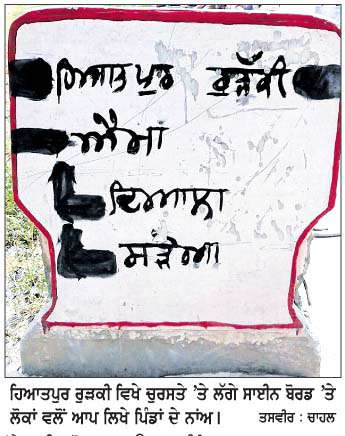 ਹਿਆਤਪੁਰ ਰੁੜਕੀ
ਐਮਾਂ
ਦਿਆਲਾ
ਹਿਆਤਪੁਰ ਰੁੜਕੀ ਵਿਖੇ ਚੁਰਸਤੇ ’ਤੇ ਲੱਗੇ ਸਾਈਨ ਬੋਰਡ ’ਤੇ
ਲੋਕਾਂ ਵਲੋਂ ਆਪ ਲਿਖੇ ਪਿੰਡਾਂ ਦੇ ਨਾਂਅ। ਤਸਵੀਰ : ਚਾਹਲ